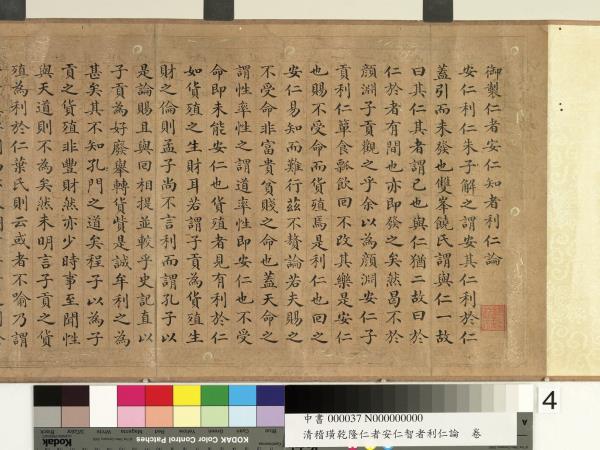 御製仁者安仁知者利仁論
安仁利仁朱子解之謂安其仁利於仁
蓋引而未發也雙峯饒氏謂與仁一故
曰其仁其者謂己也與仁猶二故曰於
仁於者有間也亦即發之矣然曷不於
顏淵子貢觀之乎余以為顏淵安仁子
貢利仁簞食瓢飲回不改其樂是安仁
也賜不受命而貨殖焉是利仁也回之
安仁易知而難行茲不贅論若夫賜之
不受命非富貴貧賤之命也蓋天命之
謂性率性之謂道率性即安仁也不受
命即未能安仁也貨殖者見有利於仁
如貨殖之生財耳若謂子貢為貨殖生
財之倫則孟子尚不言利而謂孔子以
是論賜且與回相提並較乎史記直以
子貢為好廢舉轉貨貲是誠牟利之為
甚矣其不知孔門之道矣程子以為子
貢之貨殖非豐財然亦少時事至聞性
與天道則不為矣然未明言子貢之貨
殖為利於仁葉氏則云或者不喻乃謂
Blue Cyan Green Yellow Red Magenta
Kodak KODAK Color Control Patches
4
中書 000037 N000000000
清稽璜乾隆仁者安仁智者利仁論 卷